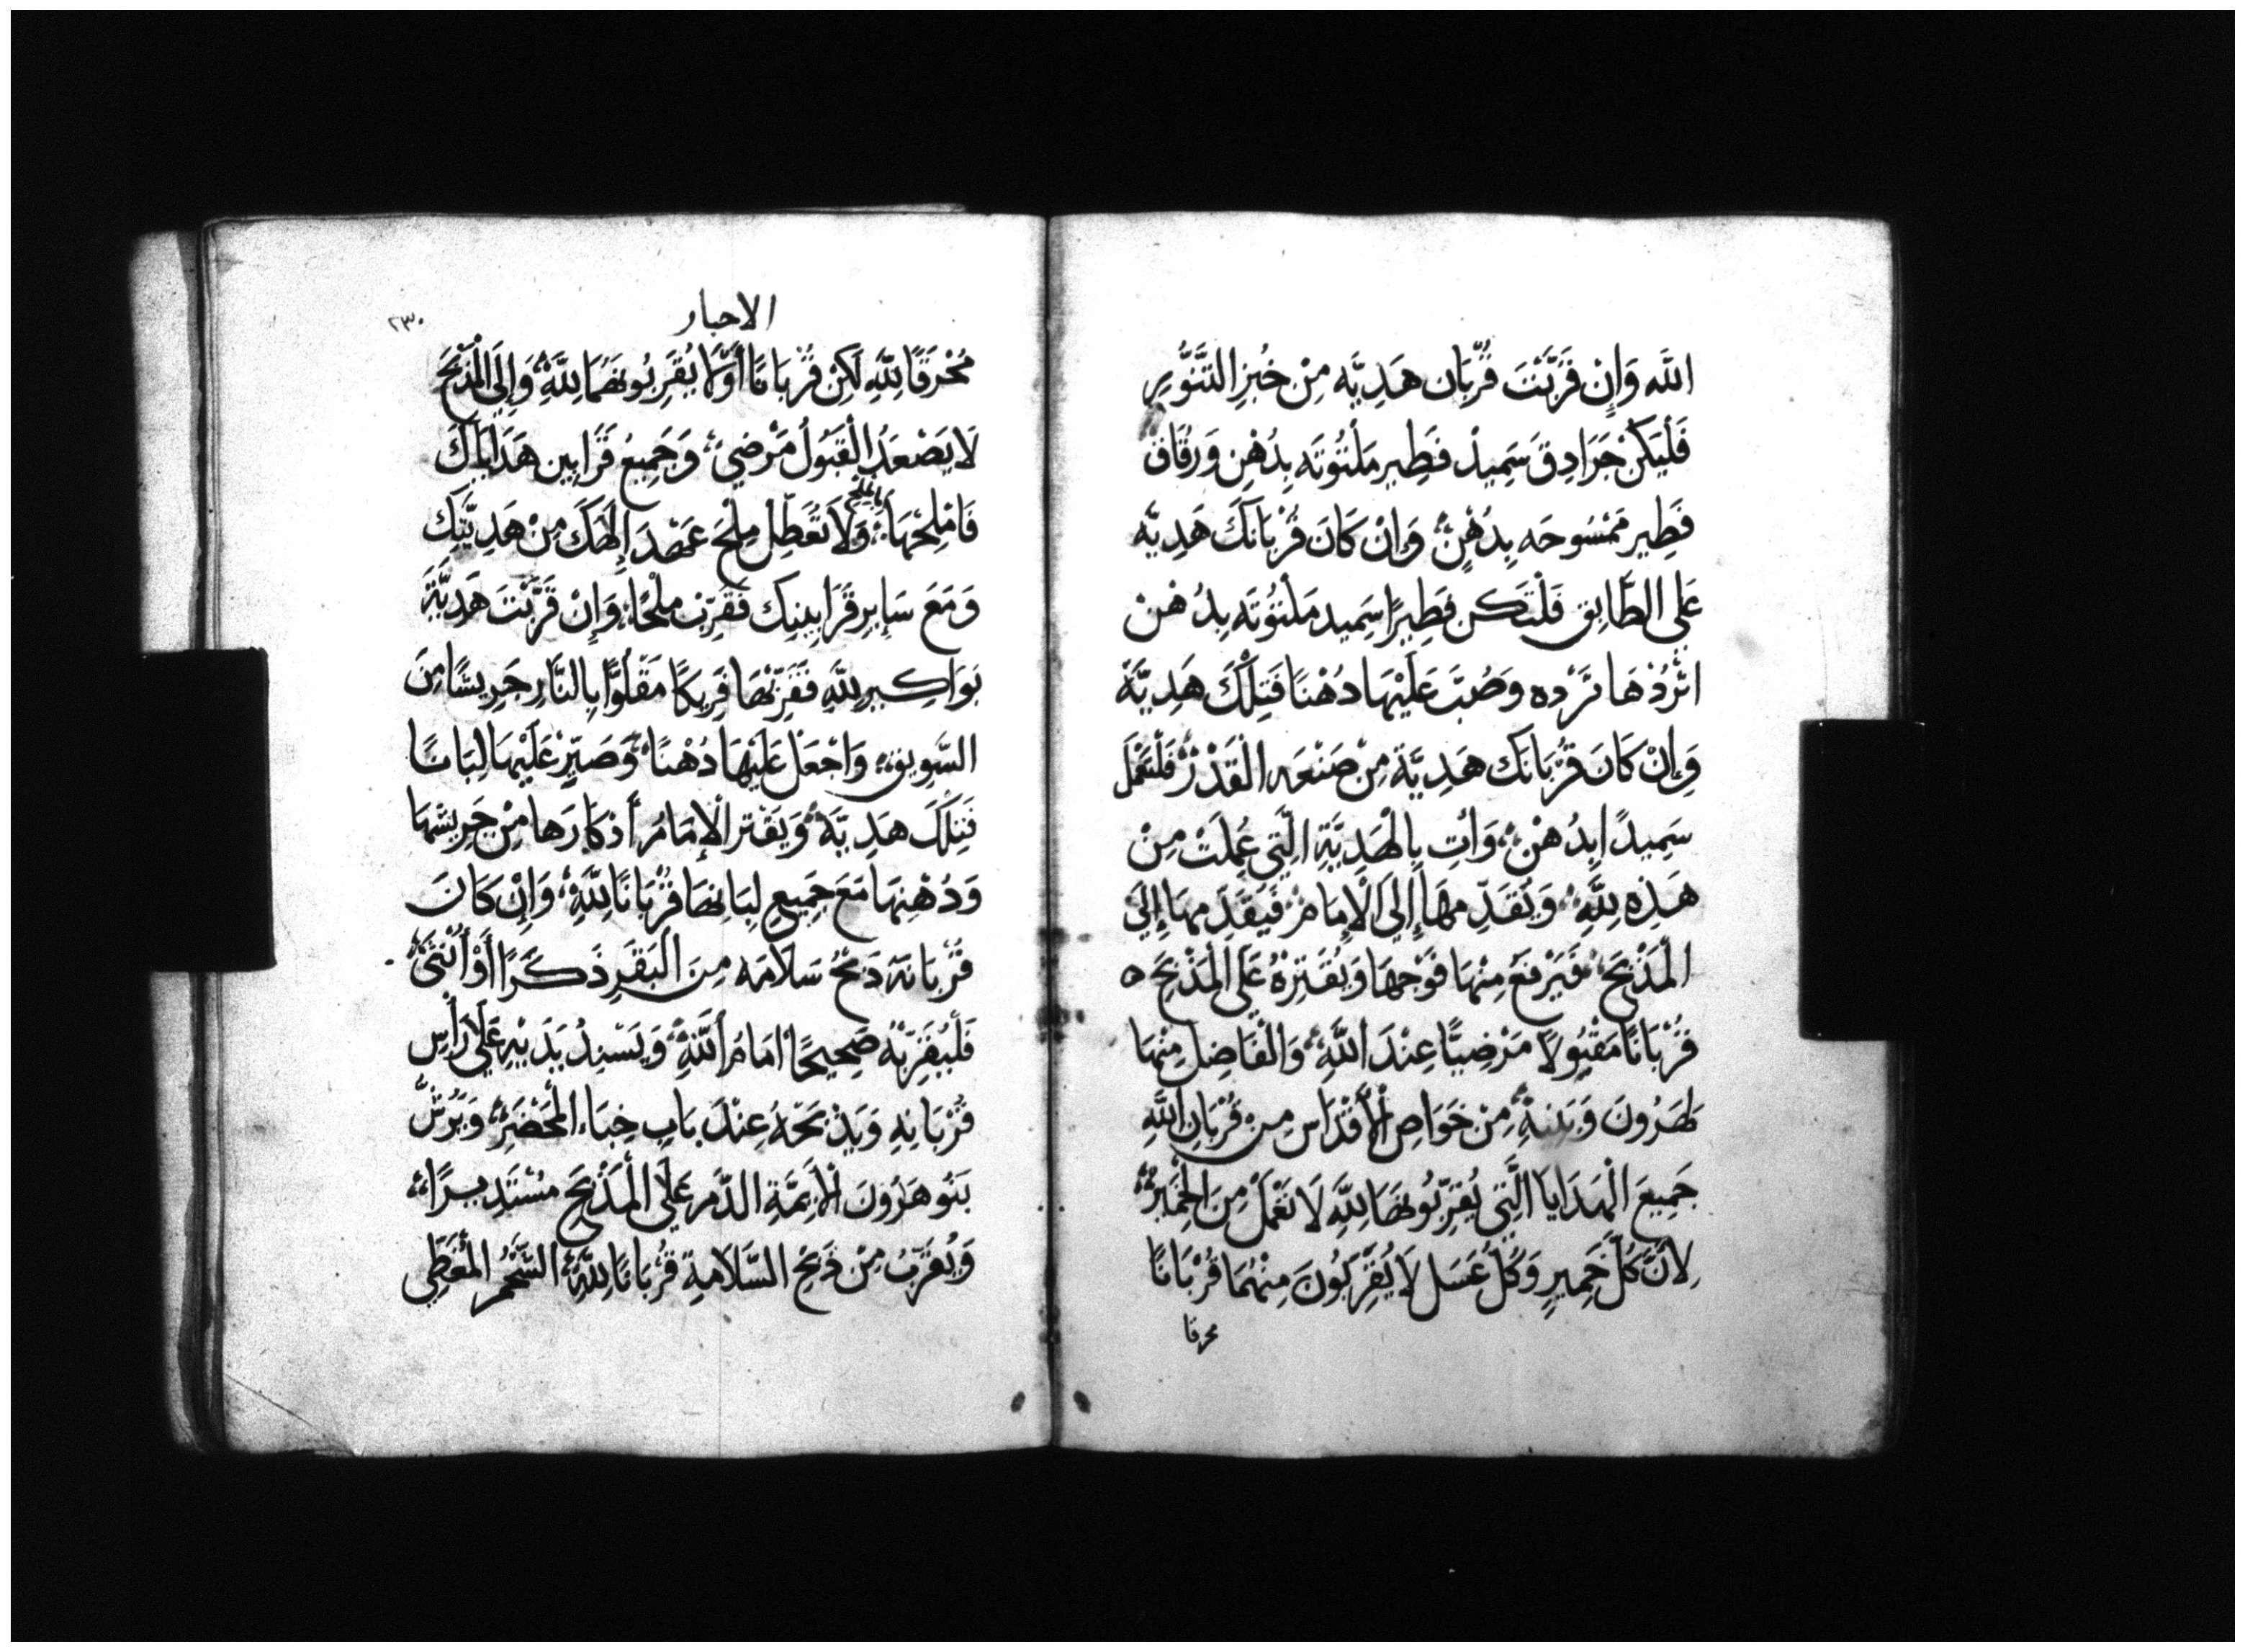 اللَّه وَإِنْ قَرَّبْتَ قُرْبَان هَدِيَّه مِنْ خُبْزِ التَّنُّورِ
فَلْيَكُنْ جَرَادِقَ سَمِيدْ فَطِير مَلْتُوتَه بِدُهْنِ وَرِقَاقَ
فَطِير مَمْسُوحَه بِدُهْنٍ وَإِنْ كَانَ قُرْبَانكَ هَدِيَّه
عَلَى الطَّابِق فَلْتَكُن فَطِيرًا سَمِيد مَلْتُوتَه بِدُهْنْ
اثْرُدْهَا ثَرْدَه وَصُبَّ عَلَيْهَا دُهْنًا فَتِلْكَ هَدِيَّةً
وَإِنْ كَانَ قُرْبَانَكَ هَدِيَّة مِنْ صَنْعَه الْقَدْرْ فَلْتَعْمَل
سَمِيدًا بِدُهْنْ وَأْتِ بِالْهَدِيَّةِ الَّتِي عُمِلَتْ مِنْ
هَذِه لِلَّهِ وَتُقَدِّمهَا إِلَى الْإِمَامْ فَيُقَدِّمهَا إِلَى
الْمَذْبَحَ فَيَرْفَعْ مِنْهَا فَوْجهَا وَيُقَتِرْهُ عَلَى الْمَذْبَحَ ه
قُرْبَانًا مَقْبُولًا مَرْضِيًّا عِنْدَ اللَّهِ وَالْفَاضِل مِنْهَا
لهَرُونَ وَبَنِيهِ مِنْ خَوَاصِ الْأَقْدَاسِ مِنْ قُرْبَانِ اللَّهِ
جَمِيعَ الْهَدَايَا الَّتِي يُقَرِّبُونهَا لِلَّهِ لَا تَعْمَلْ مِنَ الْخَمِيرْ
لِأَنَّ كُلَّ خَمِيرٍ وَكُلَّ عَسَل لَا يُقَرِّبُونَ مِنْهُمَا قُرْبَانًا
محرقا
الاحبار
٢٣٠
مُحْرَقًا لِلَّهِ لَكِنْ قُرْبَانًا أَوَّلًا يُقَرِّبُونهُمَا لِلَّهِ وَإِلَى الْمَذْبَحَ
لَا يَصْعَدُ الْقَبُولُ مَرْضِي وَجَمِيعُ قَرَابِين هَدَايَاكَ
فَامْلِحْهَا بالملح وَلَا تُعَطِّلْ مِلْحَ عَهْدَ إِلَهَكَ مِنْ هَدِيَّتِك
وَمَعَ سَايِرِ قَرَابِينِك فَقَرِّبْ مِلْحًا وَإِنْ قَرَّبْتَ هَدِيَّةَ
بَوَاكِير لِلَّهِ فَقَرِّبْهَا فَرِيكًا مَقْلُوًّا بِالنَّارِ جَرِيشًا مِنَ
السَّوِيق وَاجْعَلْ عَلَيْهَا دُهْنًا وَصَيِّرْ عَلَيْهَا لِبَانًا
فَتِلْكَ هَدِيَّةً وَيُقَتِر الْإِمَامُ أَذْكَارَهَا مِنْ جَرِيشهَا
وَدُهْنِهَا مَعَ جَمِيعِ لِبَانهَا قُرْبَانًا لِلَّهِ وَإِنْ كَانَ
قُرْبَانَهُ ذَبْحُ سَلَامَه مِنَ الْبَقَرِ ذَكَرًا أَوْ أُنْثَى
فَلْيُقَرِّبْهُ صَحِيحًا أَمَامَ اللَّهِ وَيَسْنِدُ يَدَيْهِ عَلَى رَأْسِ
قُرْبَانِهِ وَيَذْبَحْهُ عِنْدَ بَابِ خِبَاء الْمَحْضَرِ وَيَرُشُّ
بَنُو هَرُونَ الْأَيِمَّةِ الدَّم عَلَى الْمَذْبَحَ مُسْتَدِيرًا
وَيُقَرِّبُ مِنْ ذَبْحِ السَّلَامَةِ قُرْبَانًا لِلَّهِ الشَّحْمُ الْمُغَطِّي